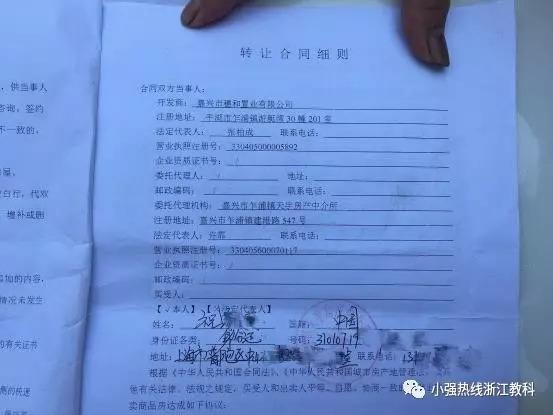 供当事人
咨询，签约
不一致的，
白行，代双
增补或删
加的内容，
情况未发生
的有关证书
转让合同细则
合同双方当事人：
开发商：嘉兴市穗和置业有限公司
注册地址：平湖市乍浦镇游艇湾30幢201室
法定代表人：张柏成 联系电话：
营业执照注册号：330405000005892
企业资质证书号：/
委托代理人：/ 地址：
邮政编码：/ 联系电话：
委托代理机构：嘉兴市乍浦镇天宇房产中介所
注册地址：嘉兴市乍浦镇建港路547号
法定代表人： 联系电话：
营业执照注册号：330405600070117
企业资质证书号：/
邮政编码：/
买受人：
【√本人】【法定代表人】
姓名：祝 国籍：中国
身份证各类： 号码：3101
地址：上海市
根据《中华人民共和国合同法》、《中华人民共和国城市房产地管理法》及其
他有关法律、法规之规定，买受人和出卖人平等、自愿、协商一致
卖商品房达成如下协议：
小强热线浙江教科